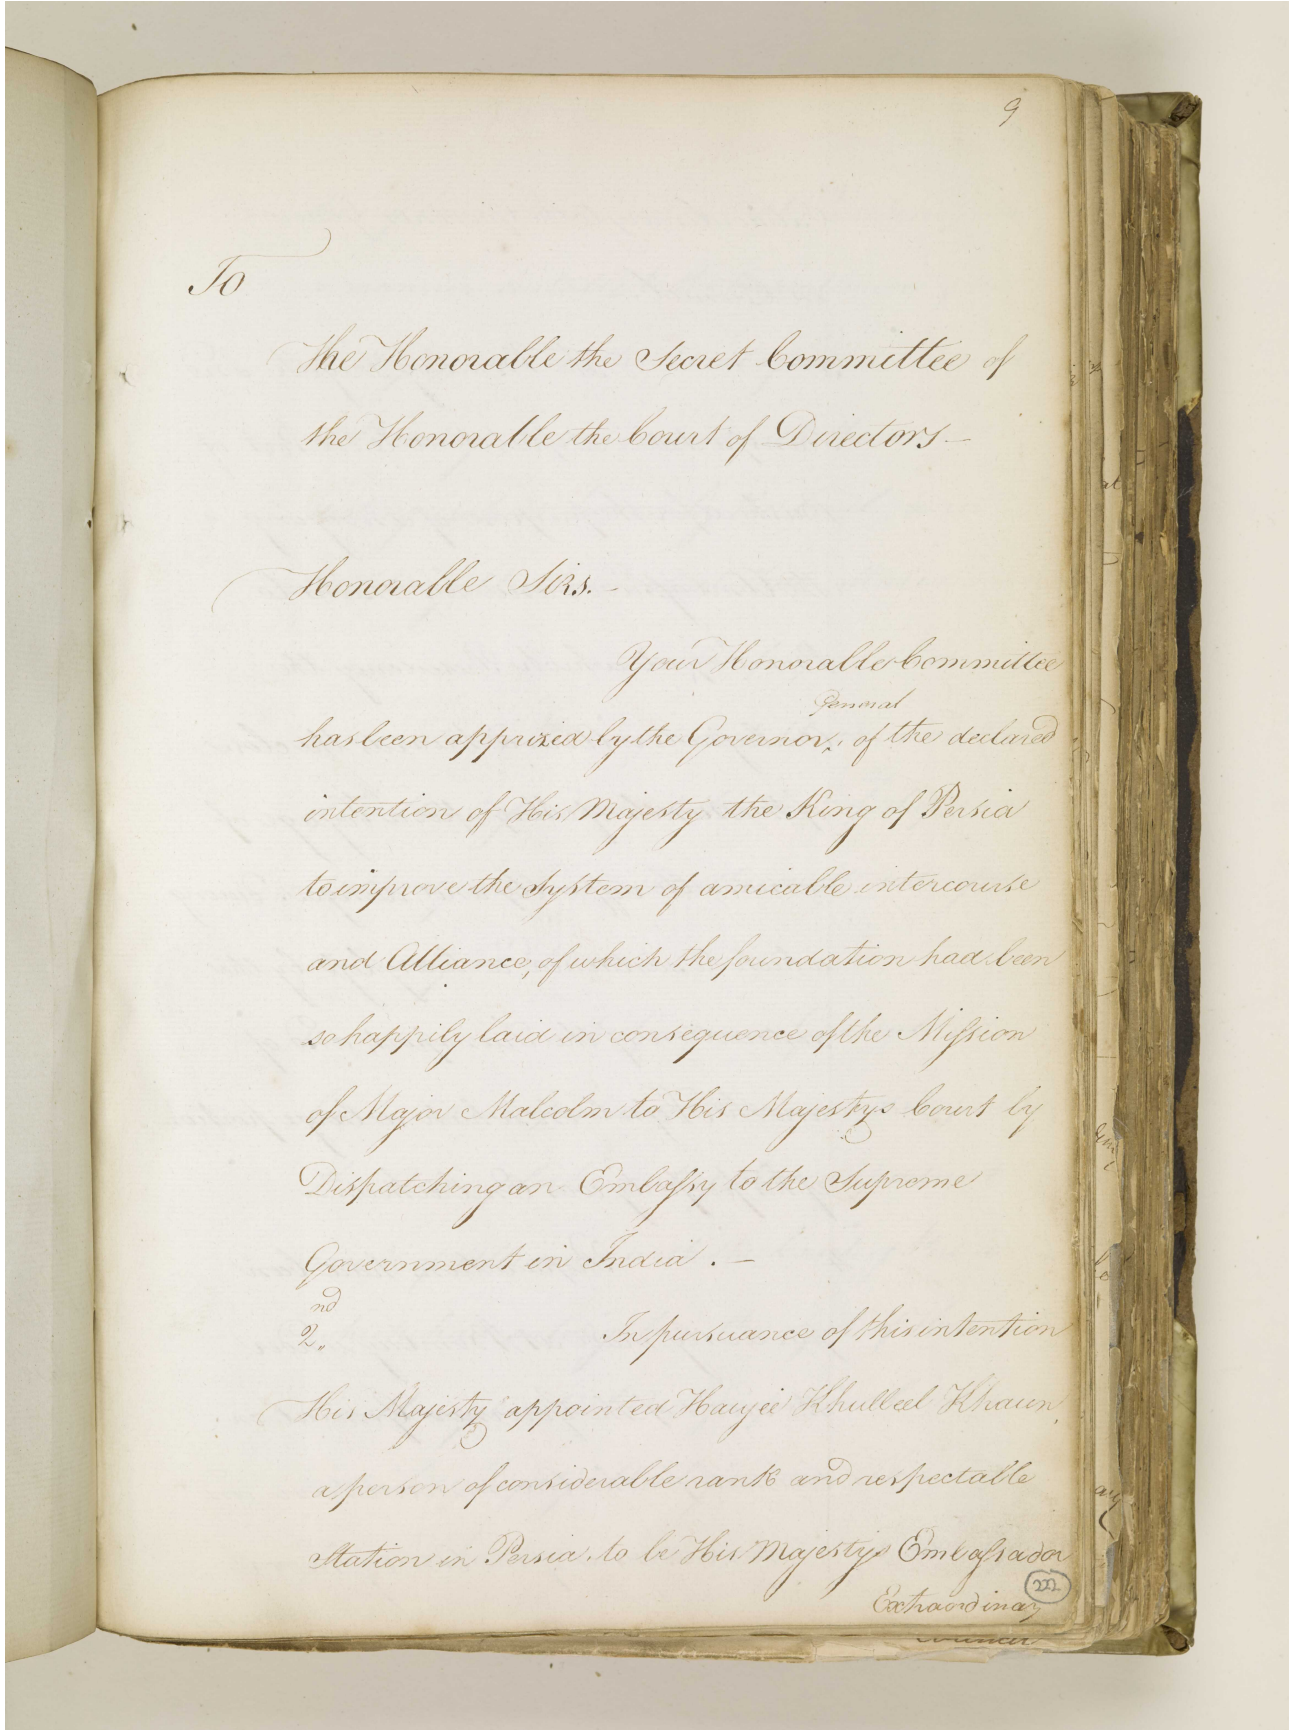 9
To
the Honorable the Secret Committee of
the Honorable the Court of Directors —
Honorable Sirs. —
Your Honorable Committee
General
has been apprized by the Governor, of the declared
intention of His Majesty the King of Persia
to improve the System of amicable intercourse
and Alliance, of which the foundation had been
so happily laid in consequence of the Mission
of Major Malcolm to His Majestys Court by
Dispatching an Embassy to the Supreme
Government in India . —
nd
2. In pursuance of this intention
His Majesty appointed Haujee Khulleel Khaun,
a person of considerable rank and respectable
Station in Persia, to be His Majestys Embassador
222
Extraordinary